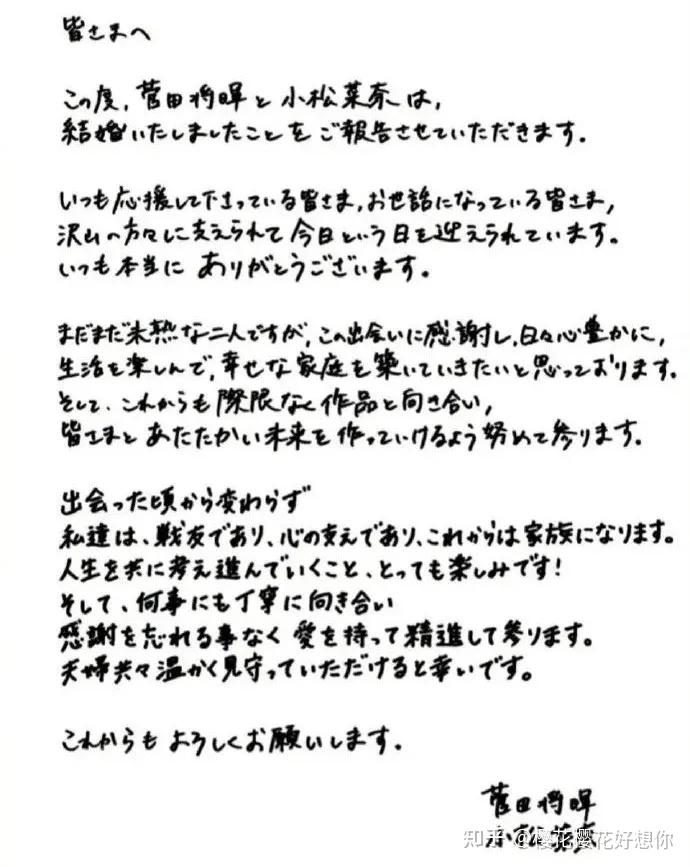 皆さまへ
この度、菅田将暉と小松菜奈は、
結婚いたしましたことをご報告させていただきます。
いつも応援して下さっている皆さま、お世話になっている皆さま、
沢山の方々に支えられて今日という日を迎えられています。
いつも本当にありがとうございます。
まだまだ未熟な二人ですが、この出会いに感謝し、日々心豊かに、
生活を楽しんで、幸せな家庭を築いていきたいと思っております。
そして、これからも際限なく作品と向き合い、
皆さまとあたたかい未来を作っていけるよう努めて参ります。
出会った頃から変わらず
私達は、戦友であり、心の支えであり、これからは家族になります。
人生を共に考え進んでいくこと、とっても楽しみです!
そして、何事にも丁寧に向き合い
感謝を忘れる事なく愛を持って精進して参ります。
夫婦共々温かく見守っていただけると幸いです。
これからもよろしくお願いします。
菅田将暉
小松菜奈
知乎 @樱花樱花好想你